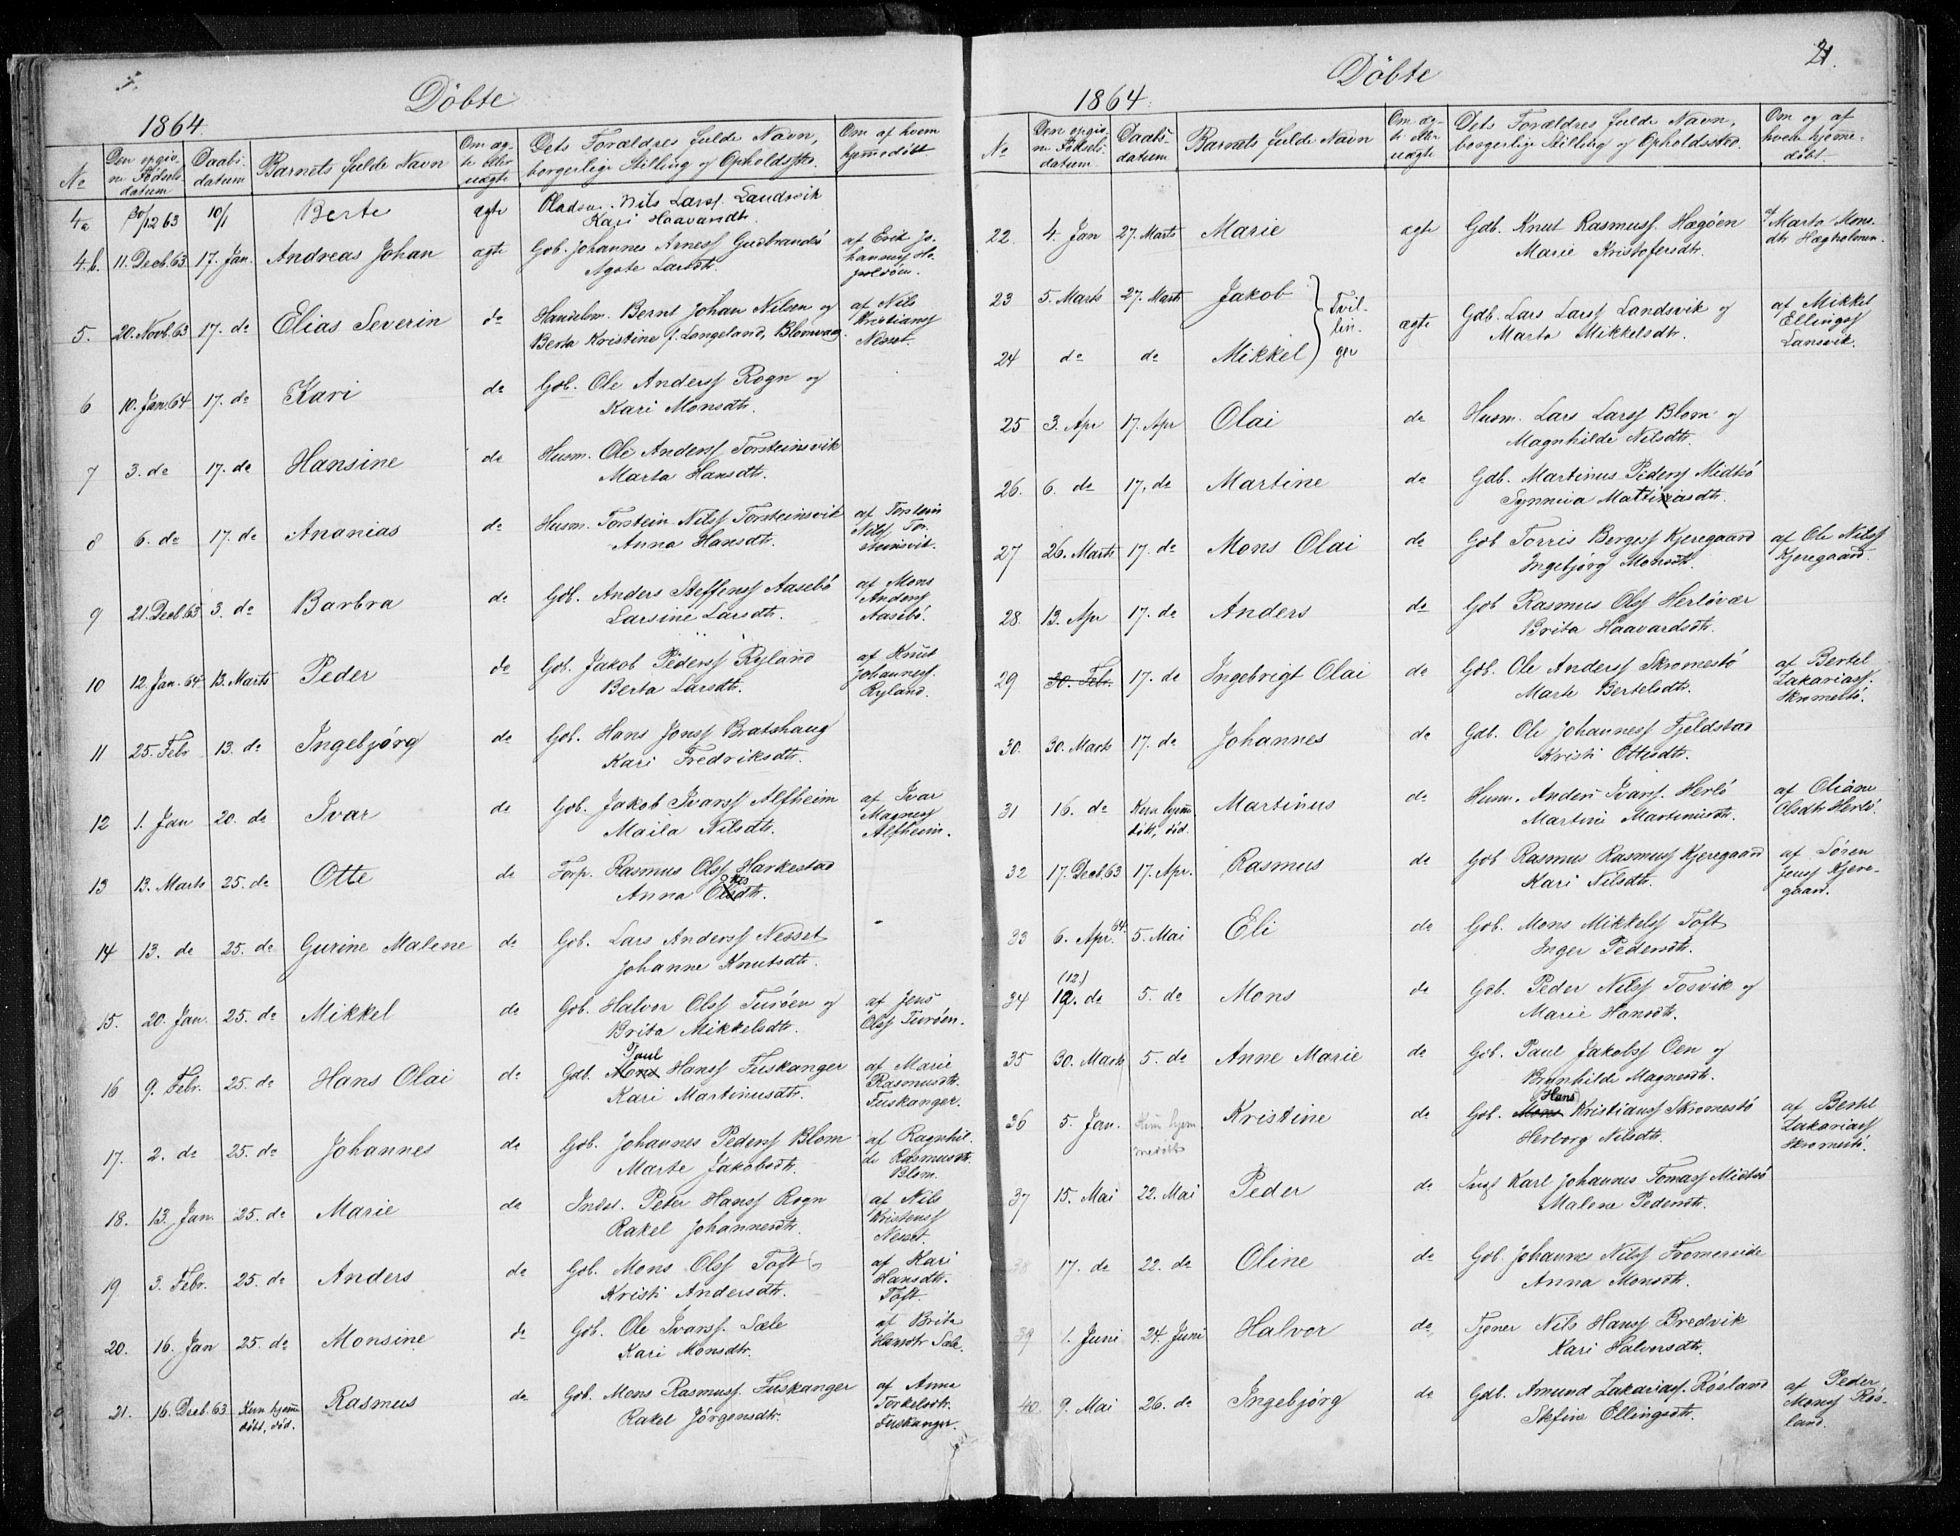 Döbte
1864.
No
Den opgivne Födselsdatum
Daabsdatum
Barnets fulde Navn
Om ægte eller uægte
Dets Forældres fulde Navn, borgerlige Stilling og Opholdssted.
Om af hvem hjemmedöbt
4a 30/12 63 10/1 Berte ægte Nils Larss Landsvik
Kari Haavardsdtr.
4.b. 11. Decb. 63 17. Jan. Andreas Johan ægte Gdb. Johannes Arness Gudbrandsö af Erik Jo-
Agate Larsdtr. hanness
5. 20. Novb. 63 17. do Elias Severin do Handelsm. Bernt Johan Nilsen og af Nils
Berta Kristine f. Langeland, Blomvaag. Kristianss
Nesset.
6 10. Jan. 64 17. do Kari do Gdb. Ole Anderss Rogn og
Kari Monsdtr.
7 3. do 17. do Hansine do Husm. Ole Anderss Torsteinsvik
Marta Hansdtr.
8 6. do 17. do Ananias do Husm. Torstein Nilss Torsteinsvik af Torstein
Anna Hansdtr. Nilss Tor-
steinsvik.
9 21. Decb. 63 3. do Barbra do Gdb. Anders Steffenss Aasebö af Mons
Larsine Larsdtr. Anderss
Aasebö.
10 12. Jan. 64 13. Marts Peder do Gdb. Jakob Pederss Ryland af Knut
Berta Larsdtr. Johanness.
Ryland.
11 25. Febr 13. do Ingebjørg do Gdb. Hans Jonss Bratshaug
Kari Fredriksdtr.
12 1. Jan 20. do Ivar do Gdb. Jakob Ivarss Alfheim af Ivar
Maila Nilsdtr. Magness
Alfheim.
13 13. Marts 25. do Otte do Forp. Rasmus Olss Harkestad
Anna Olsdtr.
14 13. do 25. do Gurine Malene do Gdb. Lars Anderss Nesset
Johanne Knutsdtr.
15. 20. Jan. 25. do Mikkel do Gdb. Halvor Olss Turöen og af Jens
Brita Mikkelsdtr. Olss Turöen.
Paul
16 9. Febr. 25. do Hans Olai do Gdb. Mons Hanss Fuskanger af Marie
Kari Martinusdtr. Rasmusdtr.
Fuskanger.
17. 2. do 25. do Johannes do Gdb. Johannes Pederss Blom af Ragnhil-
Marte Jakobsdtr. de Rasmusdtr.
Blom.
18. 13. Jan. 25. do Marie do Inds. Peter Hanss Rogn af Nils
Rakel Johannesdtr. Kristenss
Nesset.
19 3. Febr. 25. do Anders do Gdb. Mons Olss Toft af Kari
Kristi Andersdtr. Hansdtr.
Toft.
20. 16. Jan 25. do Monsine do Gdb. Ole Ivarss. Sæle af Brita
Kari Monsdtr. Hansdtr Sæle.
21. 16. Decb. 63 Kun hjemmedöbt, död. Rasmus do Gdb. Mons Rasmuss. Fuskanger af Anna
Rakel Jörgensdtr. Torkelsdtr.
Fuskanger.
21.
Döbte
1864.
No
Den opgivne Födselsdatum.
Daabsdatum
Barnets fulde Navn
Om ægte eller uægte
Dets Forældres fulde Navn, borgerlige Stilling og Opholdssted.
Om og af hvem hjemmedöbt.
22. 4. Jan 27. Marts Marie ægte Gdb. Knut Rasmuss. Hægöen af Marta Mons-
Marie Kristofersdtr. dtr Hægholmen.
23 5. Marts 27. Marts Jakob Tvillinger ægte Gdb. Lars Larss Landsvik og af Mikkel
24 do do Mikkel Marta Mikkelsdtr. Ellingss
Lansvik.
25 3. Apr 17. Apr Olai do Husm. Lars Larss Blom og
Magnhilde Nilsdtr.
26. 6. do 17. do Martine do Gdb. Martinus Pederss Midtö
Synneva Mattiasdtr.
27 26. Marts 17. do Mons Olai do Gdb Torris Bergess Kjeregaard af Ole Nilss
Ingebjørg Monsdtr. Kjeregaard.
28. 13. Apr 17. do Anders do Gdb Rasmus Olss Herlövær
Brita Haavardsdtr.
29 30. Febr. 17. do Ingebrigt Olai do Gdb. Ole Anderss Skromestö af Bertel
Marte Bertelsdtr. Zakariass.
Skromestö.
30. 30. Marts 17. do Johannes do Gdb. Ole Johanness Fjeldstad
Kristi Ottesdtr.
31 16. do Kun hjemmedöbt, död. Martinus do Husm. Anders Ivarss. Herlö af Oliane
Martine Martinusdtr. Olsdtr Herlö.
32 17. Decb. 63 17. Apr. Rasmus do Gdb Rasmus Rasmuss Kjeregaard af Sören
Kari Nilsdtr. Jenss Kjere-
gaard.
33 6. Apr. 64 5. Mai Eli do Gdb. Mons Mikkelss Toft
Inger Pedersdtr.
(12.)
34 12. do 5. do Mons do Gdb. Peder Nilss Tosvik og
Marie Hansdtr.
35 30. Marts 5. do Anne Marie do Gdb. Paul Jakobss Oen og
Brynhilde Magnesdtr.
Hans
36 5. Jan. Kun hjemmedöbt Kristine do Gdb. Mons Kristianss Skromestö af Bertel
Herborg Nilsdtr. Zakariass
Skromestö.
37 15. Mai 22. Mai Peder do Karl Johannes Tomass Midtö
Malene Pedersdtr.
38 17. do 22. do Oline do Gdb. Johannes Nilss Fromereide
Anna Monsdtr.
39 1. Juni 24. Juni Halvor do Tjener Nils Hanss Bredvik
Kari Halvorsdtr.
40. 9. Mai 26. do Ingebjörg do Gdb. Amund Zakariass. Rösland af Peder
Stefine Ellingsdtr. Monss Rös-
land.